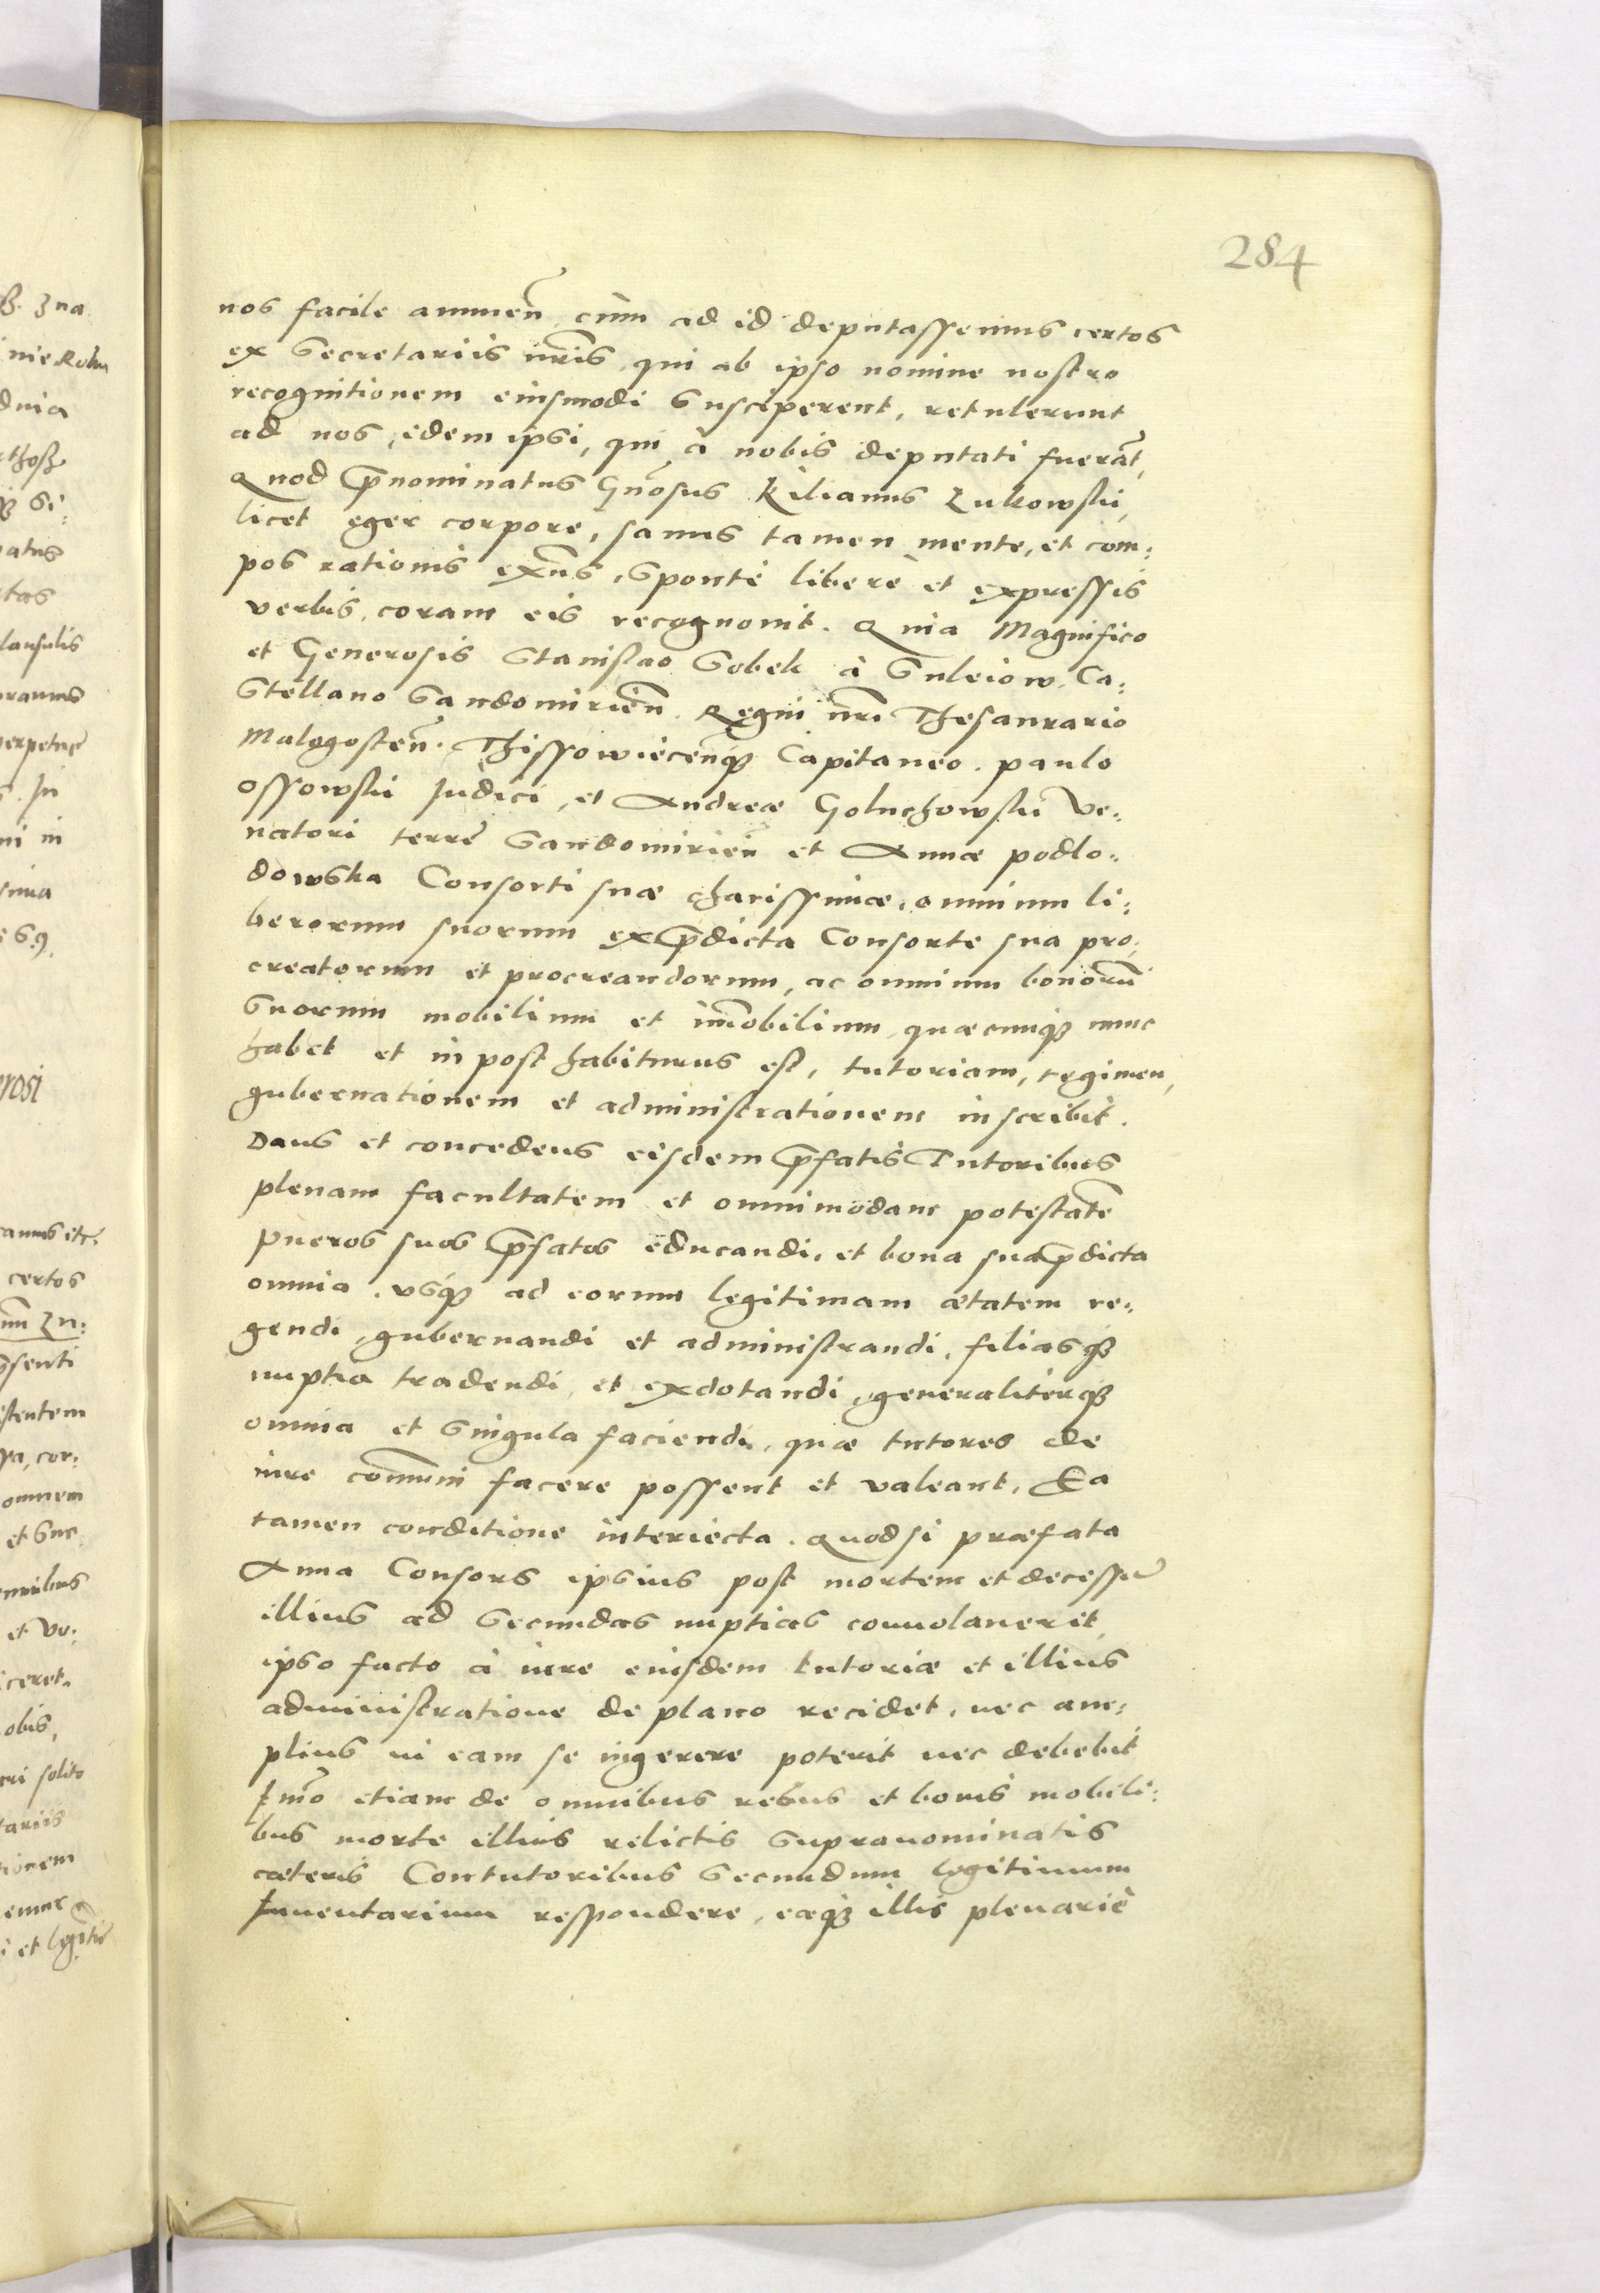 284
nos facile annuen̄ cùm ad id deputassemus certos
ex Secretariis nr̄is, qui ab ipso nomine nostro
recognitionem eiusmodi susciperent, retulerunt
ad nos, idem ipsi, qui à nobis deputati fuerāt,
Quod p̄nominatus Gn̄osus Kilianus Zukowskii,
licet eger corpore, sanus tamen mente, et com:
pos rationis exn̄s, sponte libere et expressis
verbis, coram eis recognouit. Quia Magnifico
et Generosis Stanislao Sobek à Suleiow, Ca:
stellano Sandomirien̄. Regni nr̄i Thesaurario
Malogosten̄. Thissowiecen̄q₃ Capitaneo. Paulo
Ossowskii Iudici, et Andreæ Goluchowskii Ve:
natori terrę Sandomirien̄ et Annæ Podlo:
dowska Consorti suæ charissimæ, omnium li:
berorum suorum ex p̄dicta Consorte sua pro:
creatorum et procreandorum, ac omnium bonorū
suorum mobilium et im̄obilium, quæcunq₃ nunc
habet et in post habiturus est, tutoriam, regimen,
gubernationem et administrationem inscribit.
Dans et concedens eisdem p̄fatis Tutoribus
plenam facultatem et omnimodam potestatē
Pueros suos p̄fatos educandi, et bona sua p̄dicta
omnia, vsq₃ ad eorum legitimam ætatem re:
gendi, gubernandi et administrandi, filiasq₃
nuptia tradendi, et exdotandi, generaliterq₃
omnia et singula faciendi, quæ tutores de
iure com̄uni facere possent et valeant, Ea
tamen conditione interiecta. Quod si præfata
Anna Consors ipsius post mortem et decessū
illius ad secundas nuptias conuolauerit,
ipso facto à iure eiusdem tutoriæ et illius
administratione de plano recidet, nec am:
plius in eam se ingerere poterit nec debebit
Imō etiam de omnibus rebus et bonis mobili:
bus morte illius relictis supranominatis
cæteris Contutoribus secundum legitimum
Inuentarium respondere, eaq₃ illis plenariè